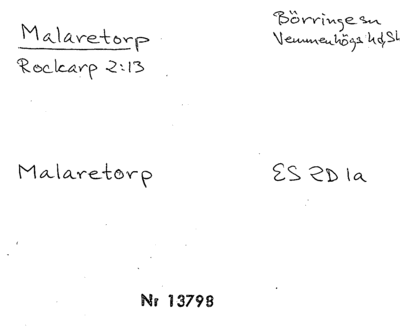 Malaretorp
Rockarp 2:13
Börringe sn
Vemmenhögs hd, Sk
Malaretorp
ES 2D 1a
Nr 13798